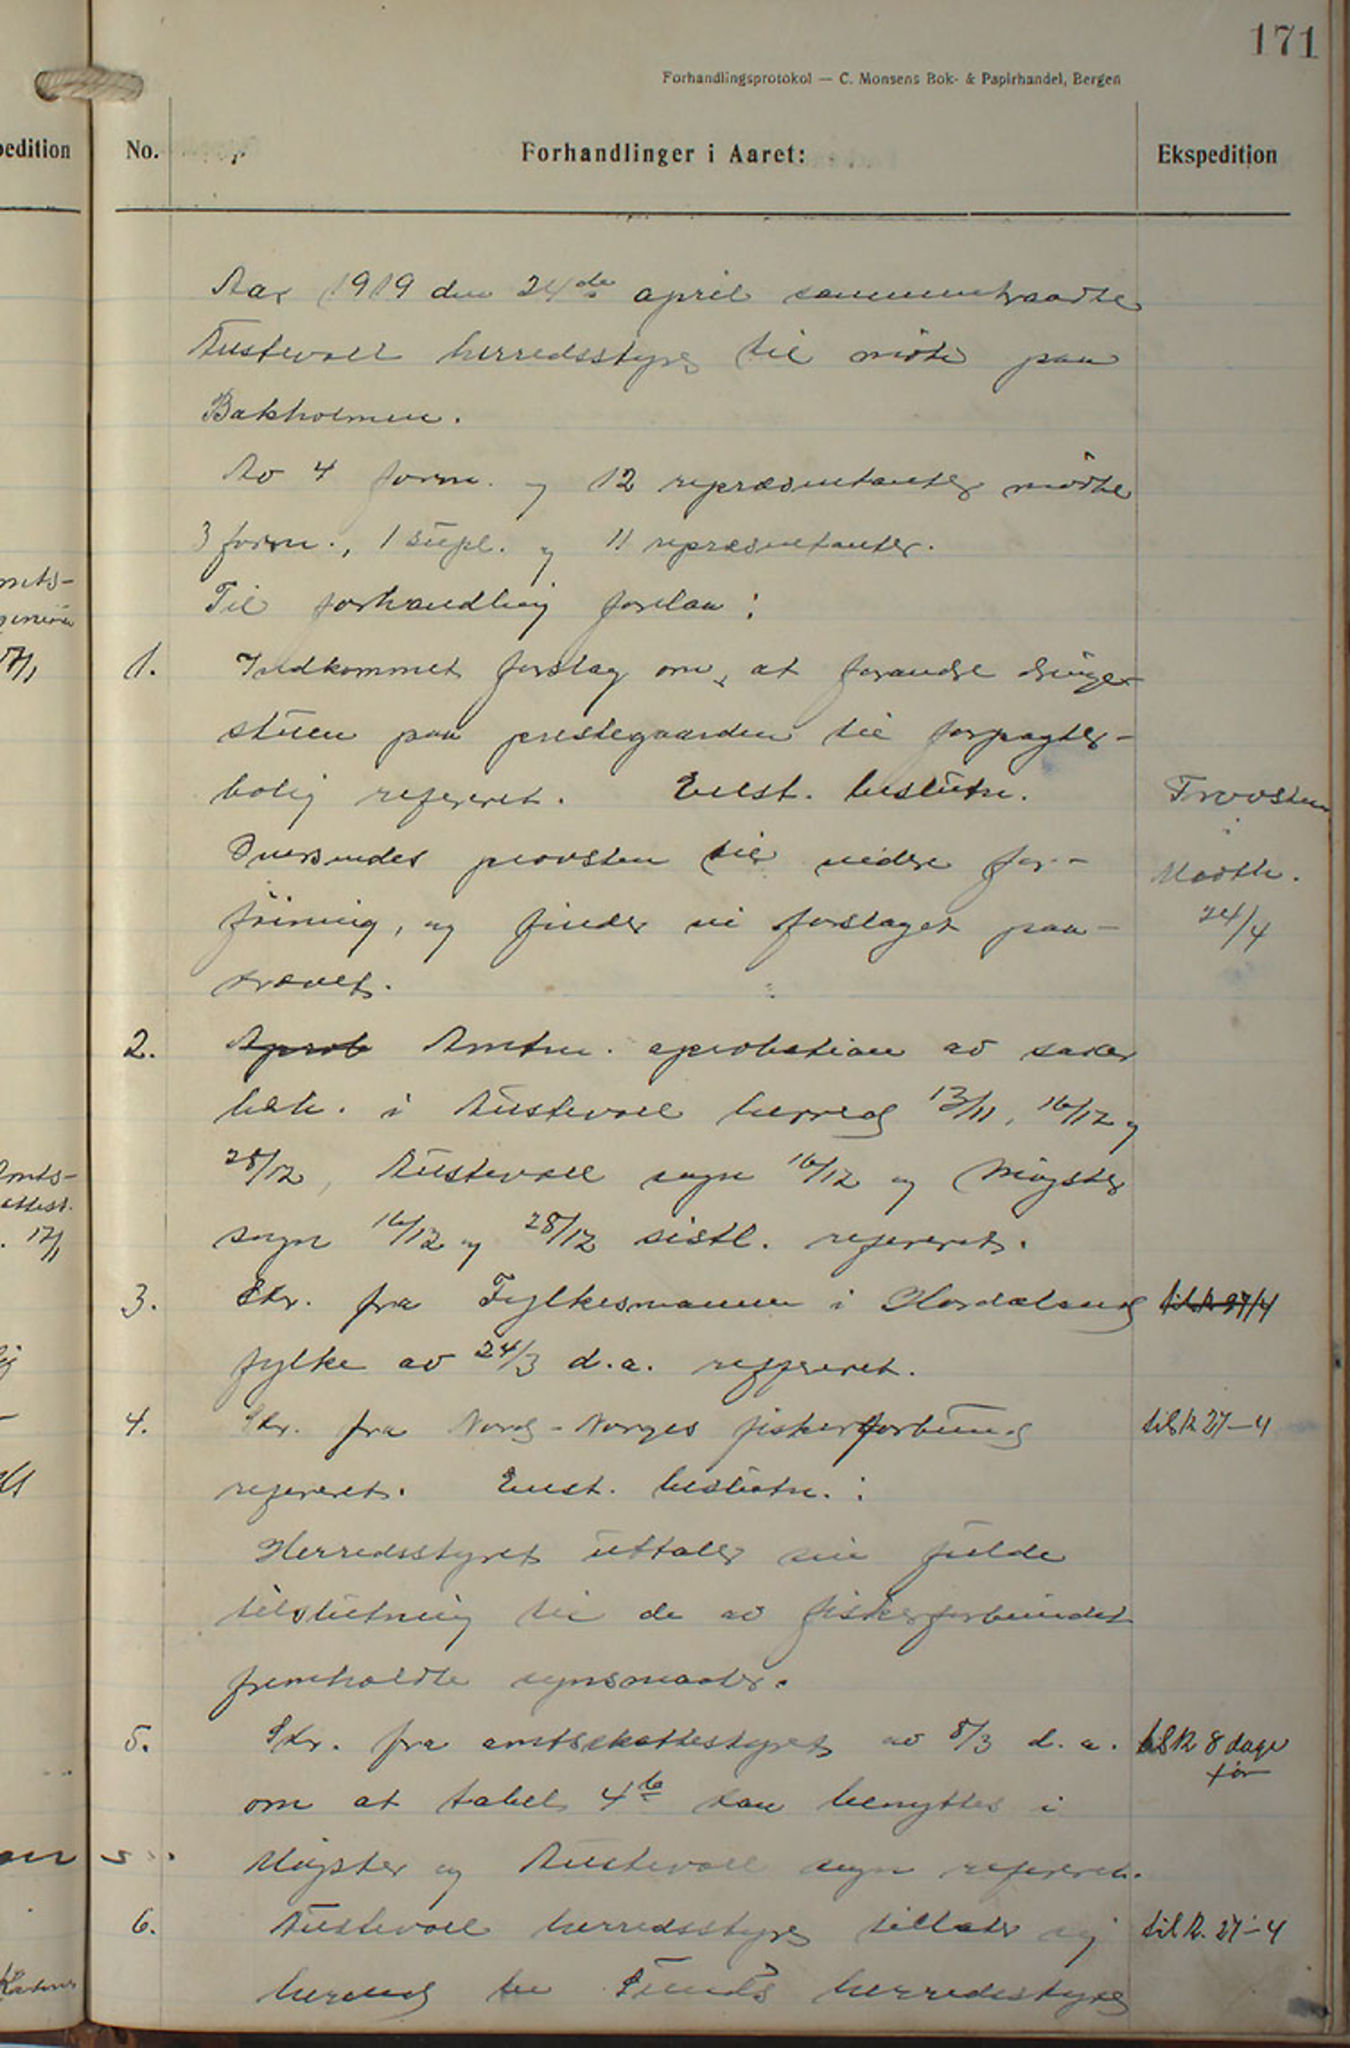 171
Forhandlingsprotokol — C. Monsens Bok- & Papirhandel, Bergen
pedition No. Forhandlinger i Aaret: Ekspedition
Aar 1919 den 24de april sammentraadte
Austevoll herredsstyre til møte paa
Bakholmen.
Av 4 form. og 12 repræsentanter møtte
3 form., 1 supl. og 11 repræsentanter.
Til forhandling forelaa:
1. Indkommet forslag om at forandre drenge-
stuen paa prestegaarden til forpagter-
bolig referert. Enst. beslutn.
Oversendes provsten til videre for-
føining, og finder vi forslaget paa-
krævet.
Provsten
i
Modth.
24/4
2. Aprob Amtm. aprobation av saker
beh. i Austevoll herred 13/11, 16/12 og
28/12, Austevoll sogn 16/12 og Møgster
sogn 16/12 og 28/12 sistl. refereret.
3. Skr. fra Fylkesmannen i Hordaland til R 27/4
fylke av 24/3 d.a. refereret.
4. Skr. fra Nord-Norges fiskerforbund til R 27-4
refereret. Enst. beslutn.:
Herredsstyret uttaler sin fulde
tilslutning til de av fiskerforbundet
fremholdte synsmaater.
5. Skr. fra amtsskattestyret av 8/3 d.a. til R 8 dage
før
om at tabel 4b kan benyttes i
Møgster og Austevoll sogn refereret.
6. Austevoll herredsstyre tillater sig til R. 27-4
herved be Sunds herredsstyre